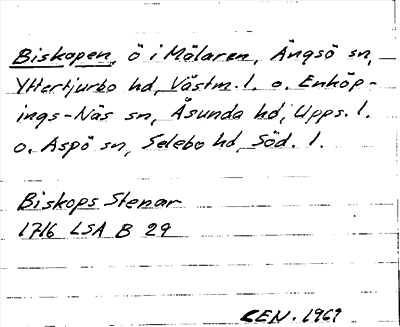 Biskopen, ö i Mälaren, Ängsö sn,
Yttertjurbo hd, Västm. l. o. Enköp-
ings-Näs sn, Åsunda hd, Upps. l.
o. Aspö sn, Selebo hd, Söd. l.
Biskops Stenar
1716 LSA B 29
CEN. 1969